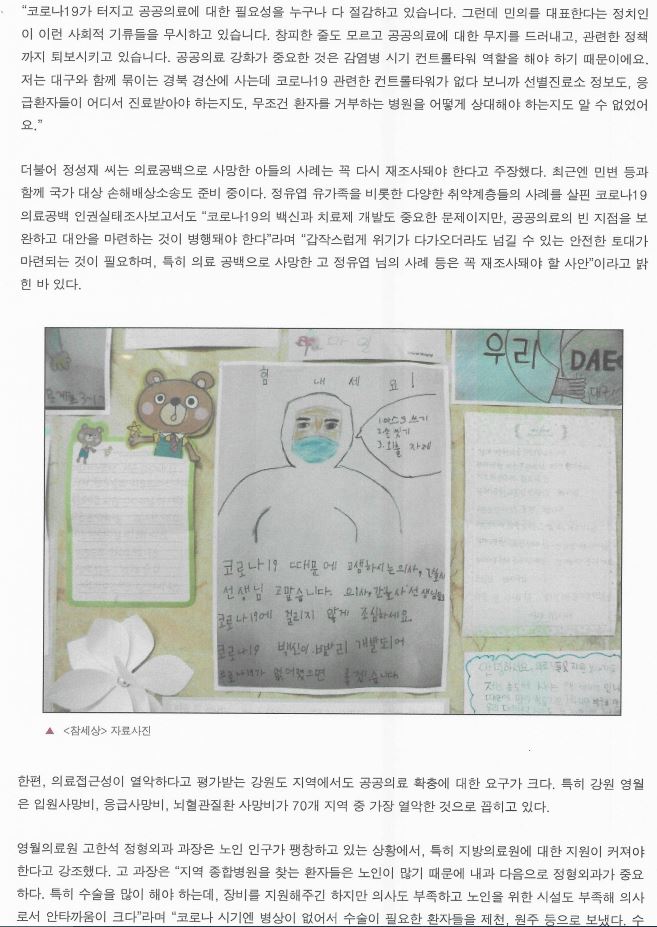 “코로나19가 터지고 공공의료에 대한 필요성을 누구나 다 절감하고 있습니다. 그런데 민의를 대표한다는 정치인
이 이런 사회적 기류들을 무시하고 있습니다. 창피한 줄도 모르고 공공의료에 대한 무지를 드러내고, 관련한 정책
까지 퇴보시키고 있습니다. 공공의료 강화가 중요한 것은 감염병 시기 컨트롤타워 역할을 해야 하기 때문이에요.
저는 대구와 함께 묶이는 경북 경산에 사는데 코로나19 관련한 컨트롤타워가 없다 보니까 선별진료소 정보도, 응
급환자들이 어디서 진료받아야 하는지도, 무조건 환자를 거부하는 병원을 어떻게 상대해야 하는지도 알 수 없었어
요.”
더불어 정성재 씨는 의료공백으로 사망한 아들의 사례는 꼭 다시 재조사돼야 한다고 주장했다. 최근엔 민변 등과
함께 국가 대상 손해배상소송도 준비 중이다. 정유엽 유가족을 비롯한 다양한 취약계층들의 사례를 살핀 코로나19
의료공백 인권실태조사보고서도 “코로나19의 백신과 치료제 개발도 중요한 문제이지만, 공공의료의 빈 지점을 보
완하고 대안을 마련하는 것이 병행돼야 한다”라며 “갑작스럽게 위기가 다가오더라도 넘길 수 있는 안전한 토대가
마련되는 것이 필요하며, 특히 의료 공백으로 사망한 고 정유엽 님의 사례 등은 꼭 재조사돼야 할 사안”이라고 밝
힌 바 있다.
힘 내 세 요!
우리
DAE
대구
1.마스크 쓰기
2.손 씻기
3.외출 자제
코로나19 때문에 고생하시는 의사, 간호사
선생님 고맙습니다. 의사, 간호사 선생님들
코로나19에 걸리지 않게 조심하세요.
코로나19 백신이 빨리 개발되어
코로나19가 없어졌으면 좋겠습니다
▲ <참세상> 자료사진
한편, 의료접근성이 열악하다고 평가받는 강원도 지역에서도 공공의료 확충에 대한 요구가 크다. 특히 강원 영월
은 입원사망비, 응급사망비, 뇌혈관질환 사망비가 70개 지역 중 가장 열악한 것으로 꼽히고 있다.
영월의료원 고한석 정형외과 과장은 노인 인구가 팽창하고 있는 상황에서, 특히 지방의료원에 대한 지원이 커져야
한다고 강조했다. 고 과장은 “지역 종합병원을 찾는 환자들은 노인이 많기 때문에 내과 다음으로 정형외과가 중요
하다. 특히 수술을 많이 해야 하는데, 장비를 지원해주긴 하지만 의사도 부족하고 노인을 위한 시설도 부족해 의사
로서 안타까움이 크다”라며 “코로나 시기엔 병상이 없어서 수술이 필요한 환자들을 제천, 원주 등으로 보냈다. 수